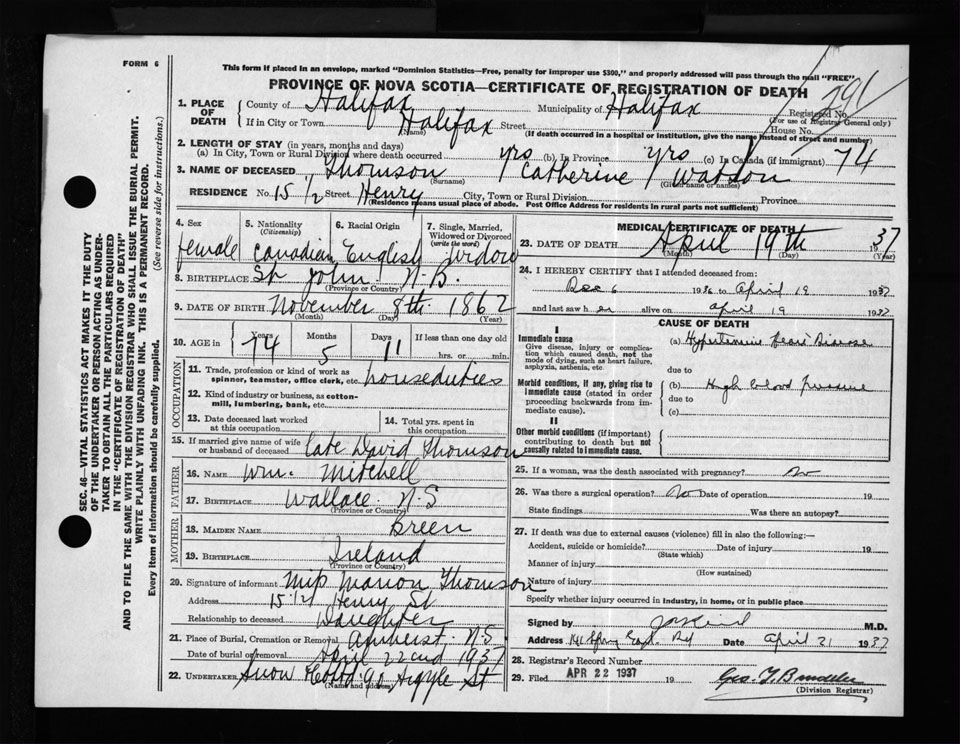 FORM 6
This form if placed in an envelope, marked "Dominion Statistics—Free, penalty for improper use $300," and properly addressed will pass through the mail "FREE"
PROVINCE OF NOVA SCOTIA—CERTIFICATE OF REGISTRATION OF DEATH
291
1. PLACE OF DEATH
County of Halifax Municipality of Halifax Registered No.
(For use of Registrar General only)
If in City or Town Halifax Street House No.
(Name) (If death occurred in a hospital or institution, give the name instead of street and number)
2. LENGTH OF STAY (in years, months and days)
(a) In City, Town or Rural Division where death occurred yrs (b) In Province yrs (c) In Canada (if immigrant) 74
3. NAME OF DECEASED Thomson Catherine
(Surname) (Given name or names)
RESIDENCE No. 15 1/2 Street Henry City, Town or Rural Division Province
(Residence means usual place of abode. Post Office Address for residents in rural parts not sufficient)
4. Sex female
5. Nationality (Citizenship) Canadian
6. Racial Origin English
7. Single, Married, Widowed or Divorced (write the word) widow
8. BIRTHPLACE St John N.B.
(Province or Country)
9. DATE OF BIRTH November 8th 1862
(Month) (Day) (Year)
10. AGE in Years 74 Months 5 Days 11 If less than one day old hrs. or min.
OCCUPATION
11. Trade, profession or kind of work as spinner, teamster, office clerk, etc. houseduties
12. Kind of industry or business, as cotton-mill, lumbering, bank, etc.
13. Date deceased last worked at this occupation
14. Total yrs. spent in this occupation
15. If married give name of wife or husband of deceased late David Thomson
FATHER
16. NAME Wm. Mitchell
17. BIRTHPLACE Wallace N-S
(Province or Country)
MOTHER
18. MAIDEN NAME Green
19. BIRTHPLACE Ireland
(Province or Country)
20. Signature of informant Miss Marion Thomson
Address 15 1/2 Henry St
Relationship to deceased Daughter
21. Place of Burial, Cremation or Removal Amherst N.S.
Date of burial or removal April 22nd 1937
22. UNDERTAKER Snow & Co 90 Argyle St
(Name and address)
MEDICAL CERTIFICATE OF DEATH
23. DATE OF DEATH April 19th 1937
(Month) (Day) (Year)
24. I HEREBY CERTIFY that I attended deceased from:
Dec 6 1936 to April 19 1937
and last saw her alive on April 19 1937
CAUSE OF DEATH
I
Immediate cause
Give disease, injury or complication which caused death, not the mode of dying, such as heart failure, asphyxia, asthenia, etc.
(a) Hypertensive Heart Disease
due to
Morbid conditions, if any, giving rise to immediate cause (stated in order proceeding backwards from immediate cause).
(b) High blood Pressure
due to
(c)
II
Other morbid conditions (if important) contributing to death but not causally related to immediate cause.
25. If a woman, was the death associated with pregnancy? No
26. Was there a surgical operation? No Date of operation 19
State findings Was there an autopsy?
27. If death was due to external causes (violence) fill in also the following:—
Accident, suicide or homicide? Date of injury 19
(State which)
Manner of injury
(How sustained)
Nature of injury
Specify whether injury occurred in Industry, in home, or in public place
Signed by M.D.
Address 141 Spring Gard. Rd Date April 21 1937
28. Registrar's Record Number
29. Filed APR 22 1937 19
(Division Registrar)
SEC. 46—VITAL STATISTICS ACT MAKES IT THE DUTY
OF THE UNDERTAKER OR PERSON ACTING AS UNDER-
TAKER TO OBTAIN ALL THE PARTICULARS REQUIRED
IN THE "CERTIFICATE OF REGISTRATION OF DEATH"
AND TO FILE THE SAME WITH THE DIVISION REGISTRAR WHO SHALL ISSUE THE BURIAL PERMIT.
WRITE PLAINLY WITH UNFADING INK. THIS IS A PERMANENT RECORD.
Every item of information should be carefully supplied. (See reverse side for instructions.)